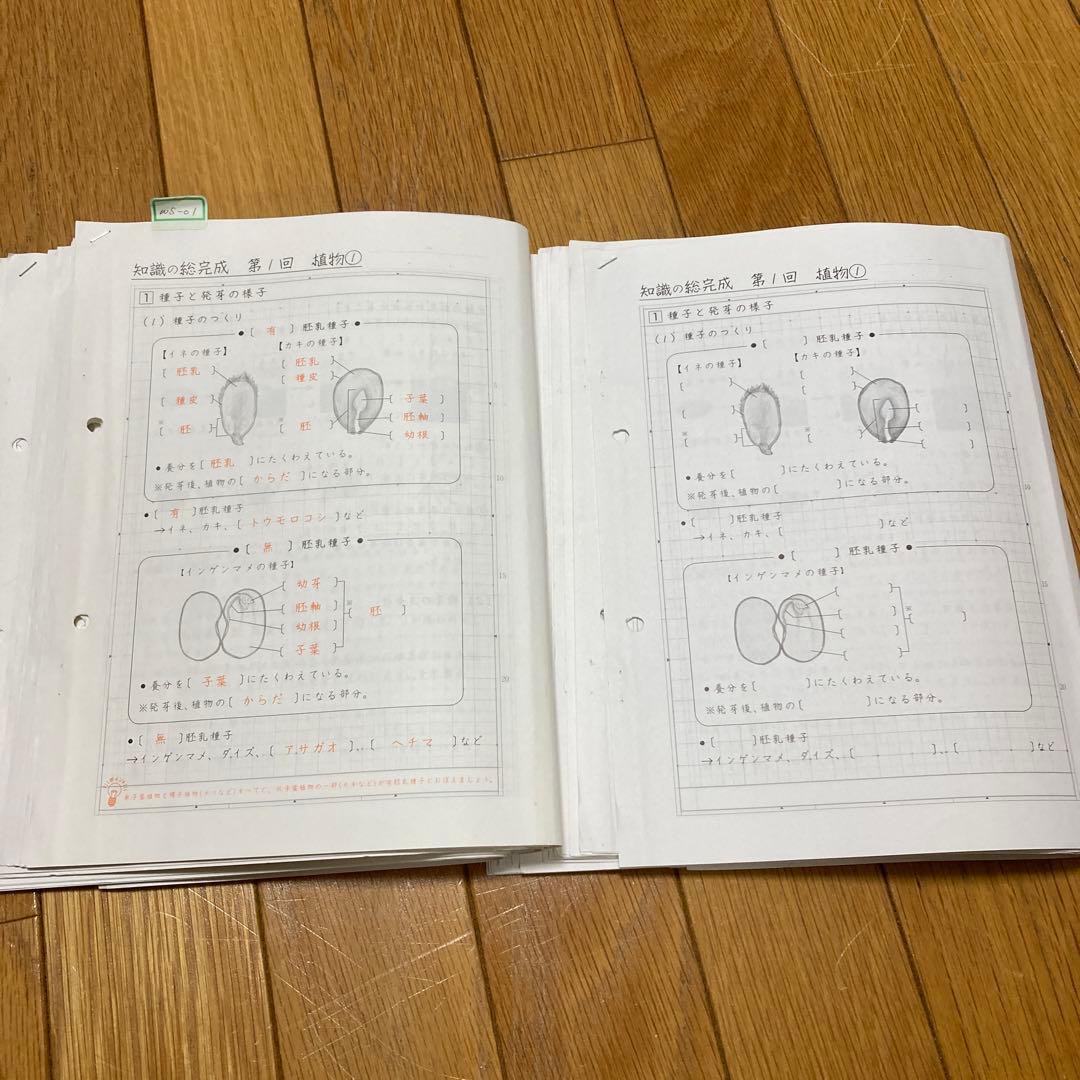 WS-01
知識の総完成 第1回 植物①
1 種子と発芽の様子
(1) 種子のつくり
●[ 有 ]胚乳種子●
【イネの種子】 【カキの種子】
[ 胚乳 ] [ 胚乳 ]
[ 種皮 ]
[ 種皮 ] [ 子葉 ]
[ 胚軸 ]
※[ 胚 ] [ 胚 ] [ 幼根 ]
●養分を[ 胚乳 ]にたくわえている。
※発芽後、植物の[ からだ ]になる部分。
●[ 有 ]胚乳種子
→イネ、カキ、[ トウモロコシ ]など
●[ 無 ]胚乳種子●
【インゲンマメの種子】
[ 幼芽 ]
[ 胚軸 ] ※[ 胚 ]
[ 幼根 ]
[ 子葉 ]
●養分を[ 子葉 ]にたくわえている。
※発芽後、植物の[ からだ ]になる部分。
●[ 無 ]胚乳種子
→インゲンマメ、ダイズ、[ アサガオ ]、[ ヘチマ ]など
5
10
15
20
知識の総完成 第1回 植物①
1 種子と発芽の様子
(1) 種子のつくり
●[ ]胚乳種子●
【イネの種子】 【カキの種子】
●養分を[ ]にたくわえている。
※発芽後、植物の[ ]になる部分。
●[ ]胚乳種子
→イネ、カキ、[ ]など
●[ ]胚乳種子●
【インゲンマメの種子】
●養分を[ ]にたくわえている。
※発芽後、植物の[ ]になる部分。
●[ ]胚乳種子
→インゲンマメ、ダイズ、[ ]、[ ]など
5
10
15
20